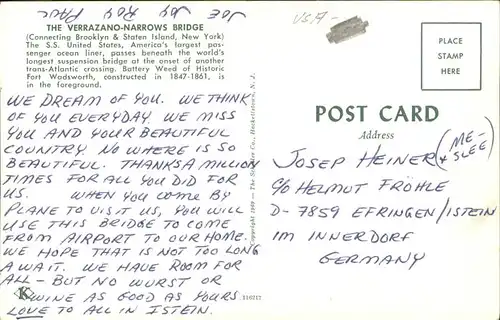 JOE JOY ROY PAUL
USA-
THE VERRAZANO-NARROWS BRIDGE
(Connecting Brooklyn & Staten Island, New York)
The S.S. United States, America's largest pas-
senger ocean liner, passes beneath the world's
longest suspension bridge at the onset of another
trans-Atlantic crossing. Battery Weed of Historic
Fort Wadsworth, constructed in 1847-1861, is
in the foreground.
WE DREAM OF YOU. WE THINK
OF YOU EVERYDAY. WE MISS
YOU AND YOUR BEAUTIFUL
COUNTRY. NO WHERE IS SO
BEAUTIFUL. THANKS A MILLION
TIMES FOR ALL YOU DID FOR
US. WHEN YOU COME BY
PLANE TO VISIT US, YOU WILL
USE THIS BRIDGE TO COME
FROM AIRPORT TO OUR HOME.
WE HOPE THAT IS NOT TOO LONG
A WAIT. WE HAVE ROOM FOR
ALL - BUT NO WURST OR
K WINE AS GOOD AS YOURS 116212
LOVE TO ALL IN ISTEIN.
Copyright 1969 - The Co., Hackettstown, N. J.
PLACE
STAMP
HERE
POST CARD
Address
JOSEP HEINER (ME-
+ SLEE)
C/O HELMUT FRÖHLE
D-7859 EFRINGEN/ISTEIN
IM INNERDORF
GERMANY